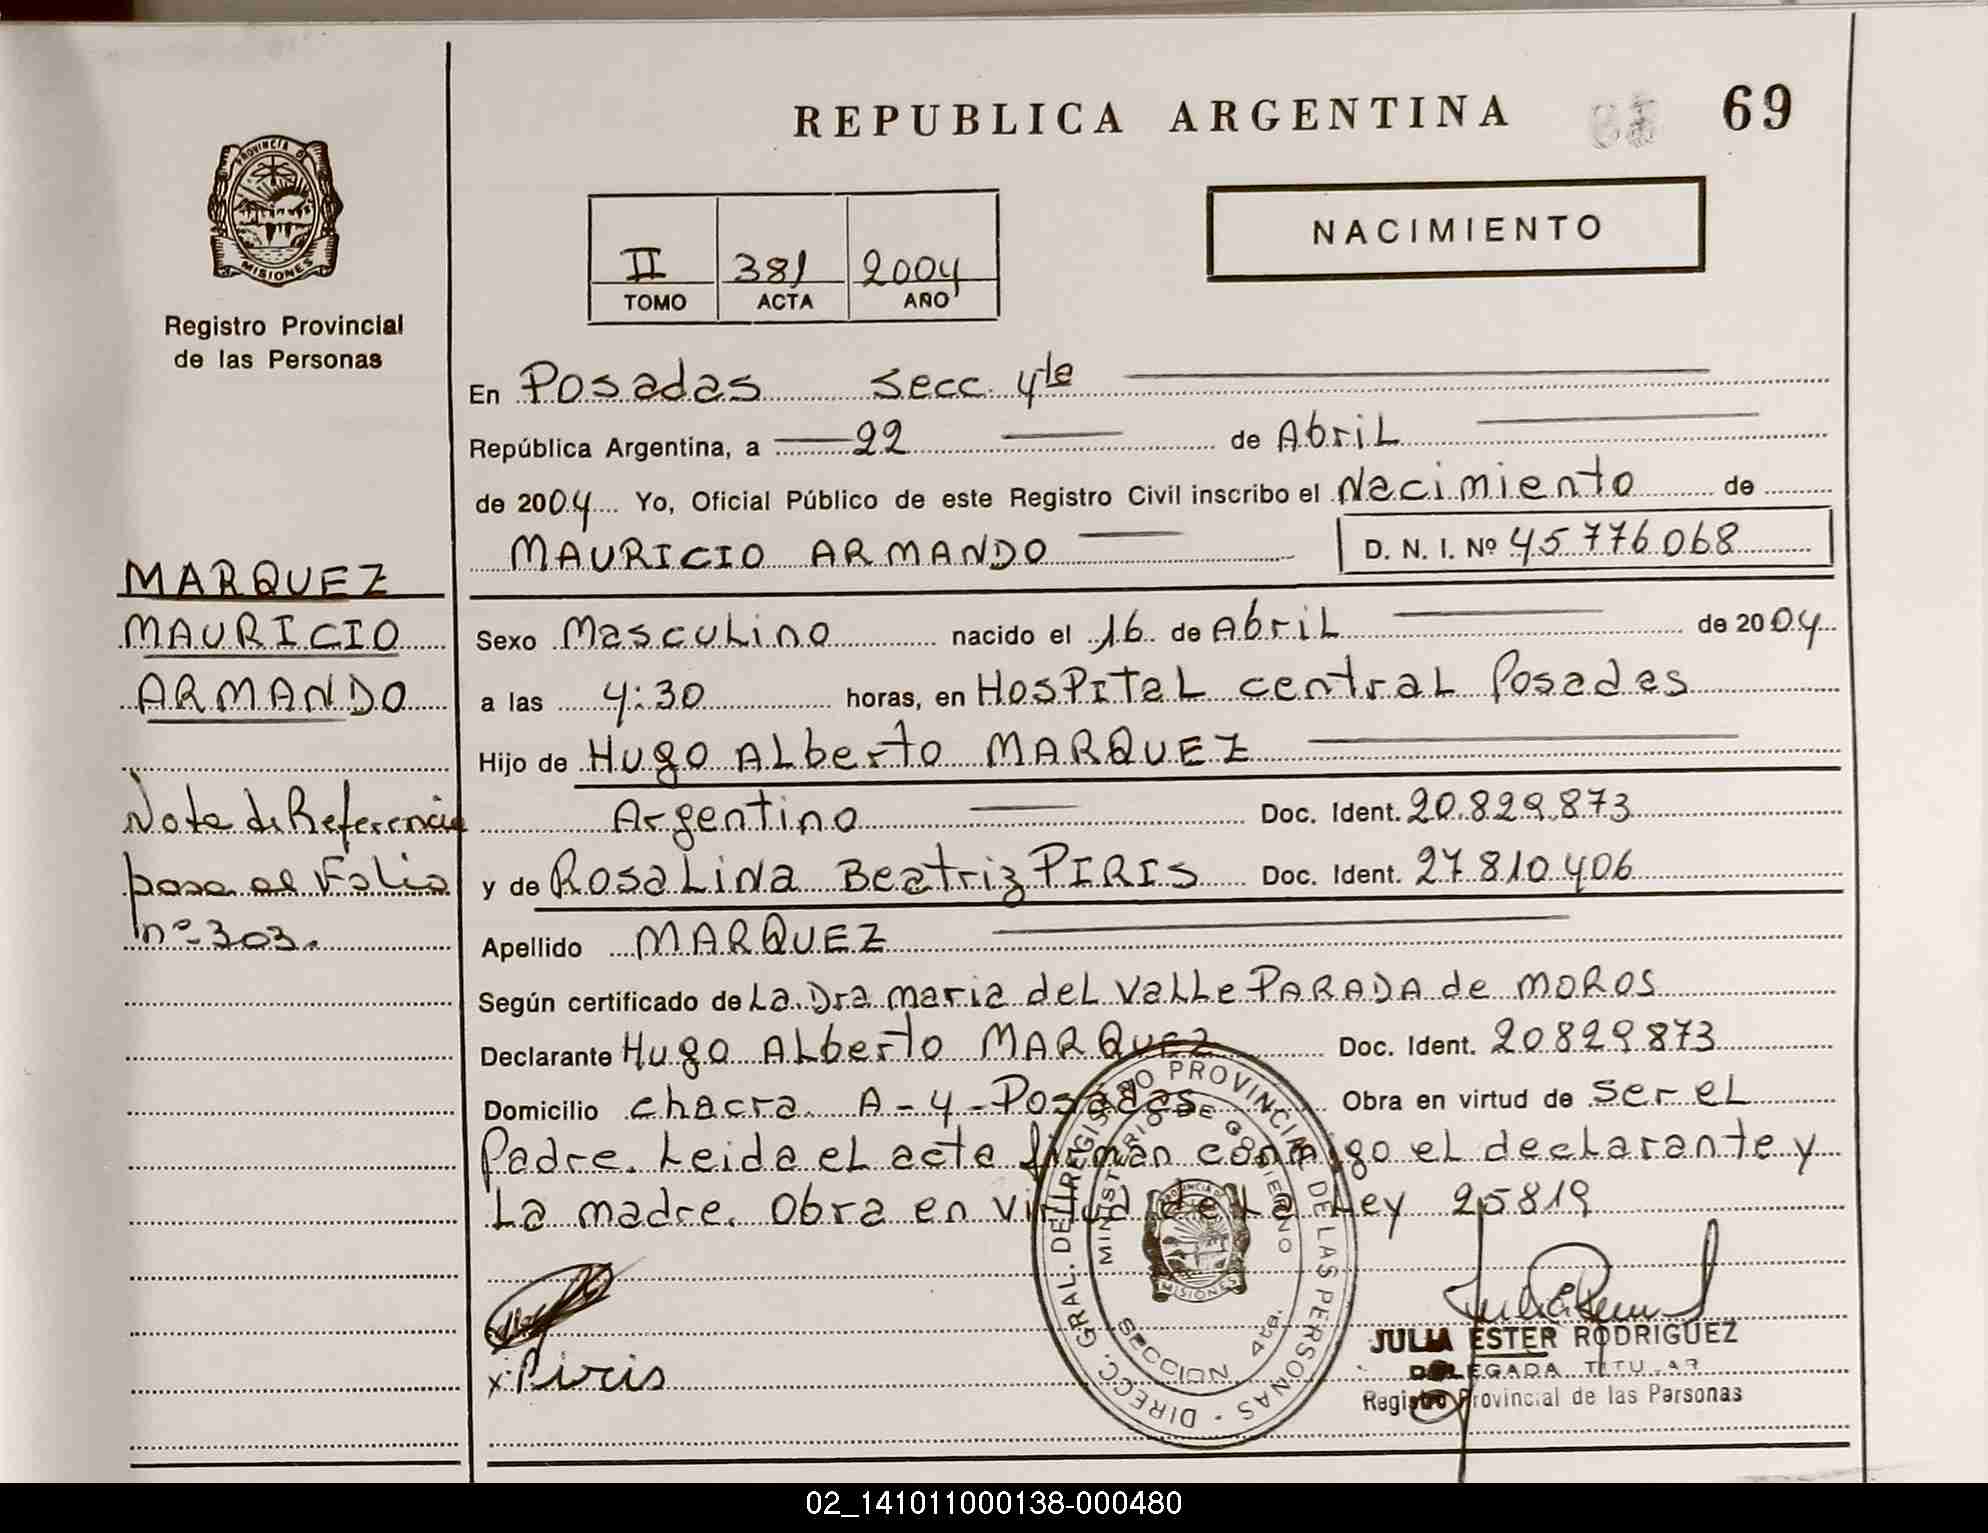 REPUBLICA ARGENTINA
69
PROVINCIA DE
MISIONES
Registro Provincial
de las Personas
NACIMIENTO
II 381 2004
TOMO ACTA AÑO
En Posadas Secc. 4ta
República Argentina, a 22 de Abril
de 2004 Yo, Oficial Público de este Registro Civil inscribo el Nacimiento de
MAURICIO ARMANDO D. N. I. Nº 45776068
MARQUEZ
MAURICIO
ARMANDO
Nota de Referencia
pasa al Folio
nº 303.
Sexo Masculino nacido el 16 de Abril de 2004
a las 4:30 horas, en Hospital central Posadas
Hijo de Hugo Alberto MARQUEZ
Argentino Doc. Ident. 20.829.873
y de Rosalina Beatriz PIRIS Doc. Ident. 27810406
Apellido MARQUEZ
Según certificado de La Dra maria del valle PARADA de MOROS
Declarante Hugo Alberto MARQUEZ Doc. Ident. 20829873
Domicilio chacra A-4-Posadas Obra en virtud de ser el
Padre. Leida el acta firman conmigo el declarante y
La madre. Obra en virtud de La Ley 25819
DIRECC. GRAL. DEL REGISTRO PROVINCIAL DE LAS PERSONAS
MINISTERIO DE GOBIERNO
MISIONES
SECCION 4ta.
x Piris
JULIA ESTER RODRIGUEZ
DELEGADA TITULAR
Registro Provincial de las Personas
02_141011000138-000480